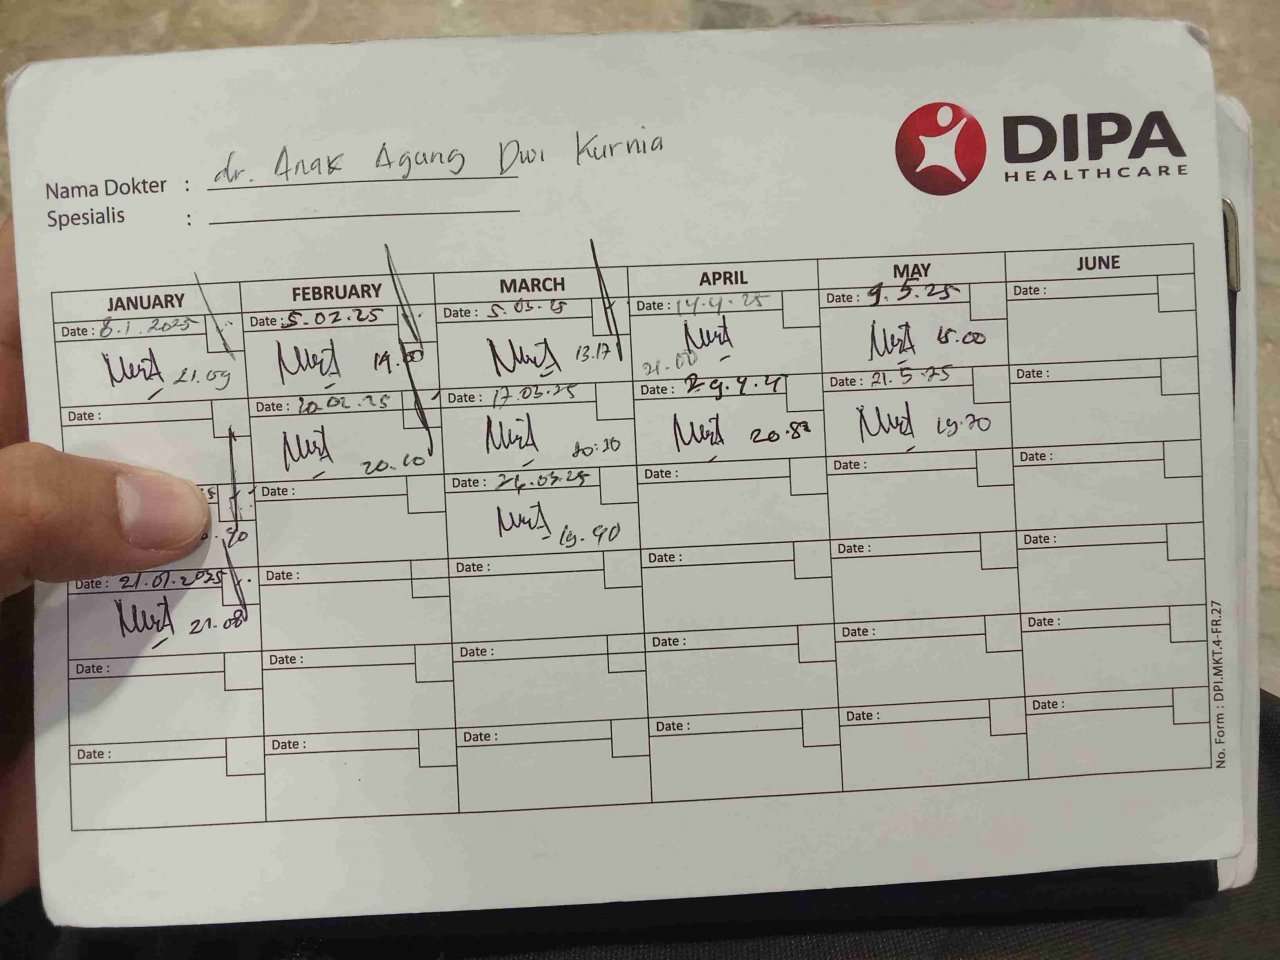 DIPA
HEALTHCARE
Nama Dokter : dr. Anak Agung Dwi Kurnia
Spesialis :
JANUARY FEBRUARY MARCH APRIL MAY JUNE
Date : 8.1.2025 Date : 5.02.25 Date : 5.03.25 Date : 14.4.25 Date : 9.5.25 Date :
21.09 19.00 13.17 21.00 15.00
Date : Date : 20.02.25 Date : 17.03.25 Date : 29.4.4 Date : 21.5.25 Date :
20.10 20:20 20.82 19.70
Date : Date : 26.03.25 Date : Date : Date :
19.40
Date : 21.01.2025 Date : Date : Date : Date : Date :
21.08
Date : Date : Date : Date : Date : Date :
Date : Date : Date : Date : Date : Date :
No. Form : DPI.MKT.4-FR.27